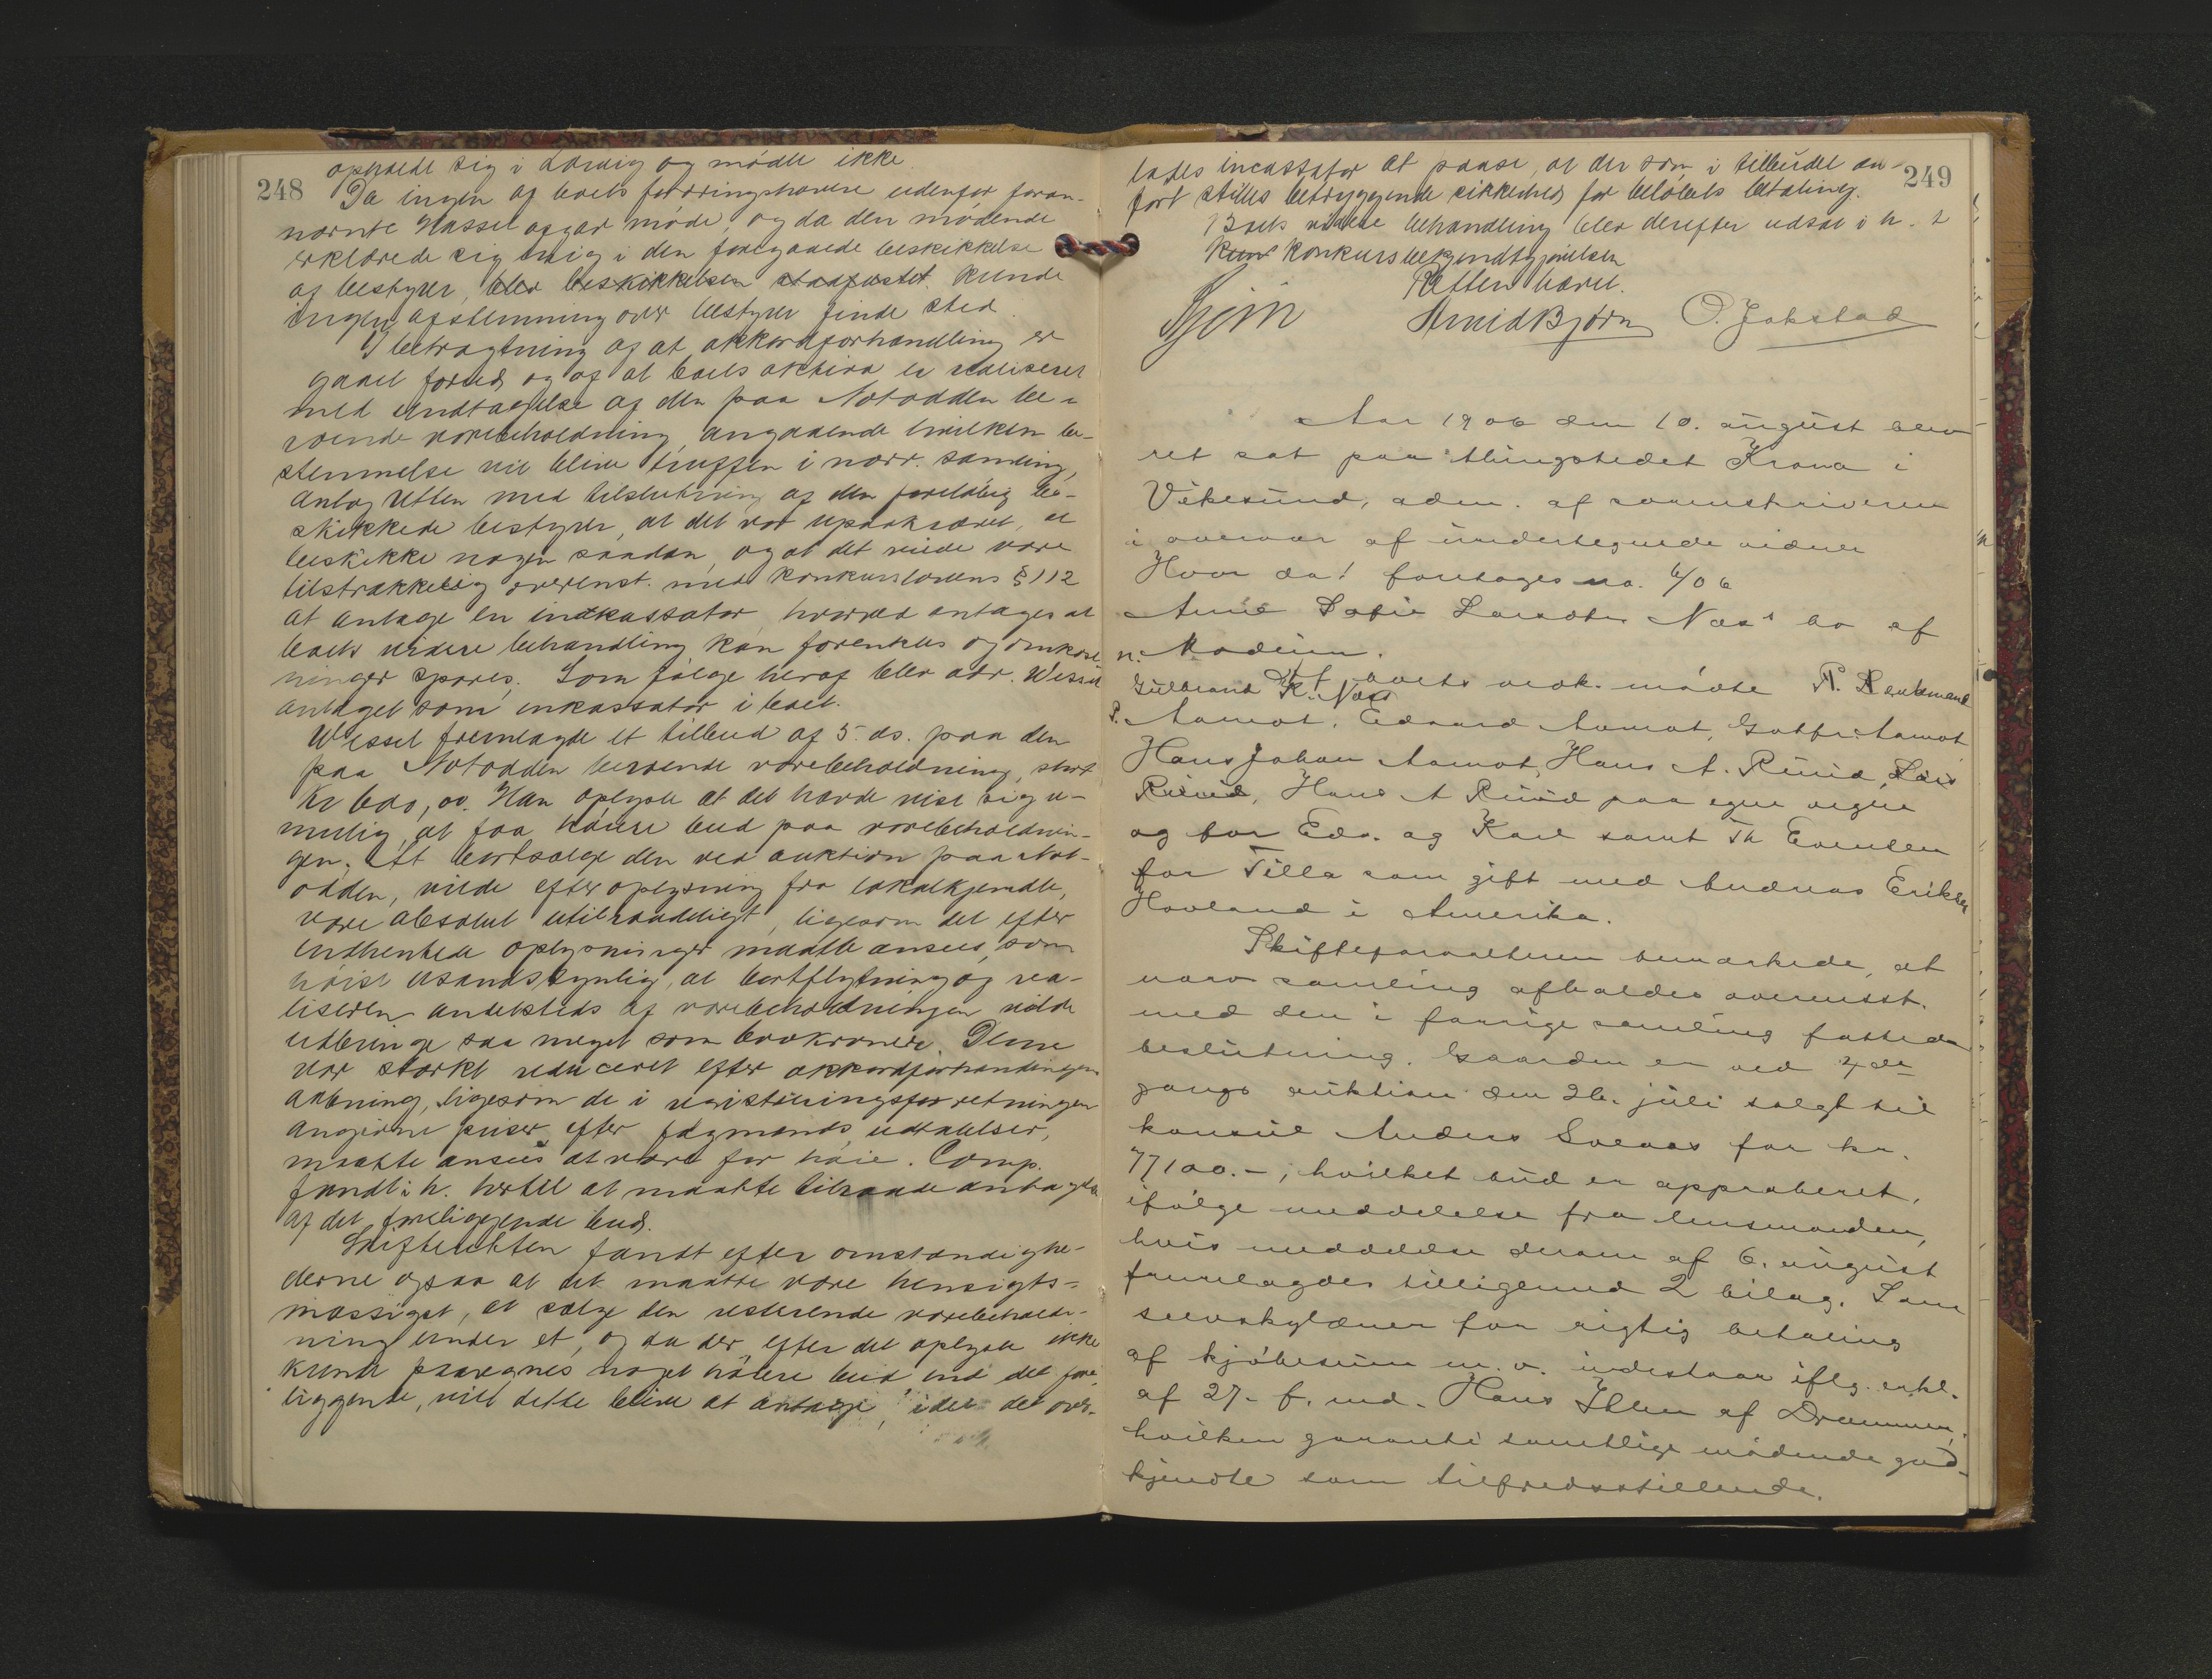 opholdt sig i Larvig og mødte ikke.
248
Da ingen af boets fordringshavere udenfor foran-
nævnte Wessel afgav møde, og da den mødende
erklærede sig enig i den foregaaede beskikkelse
af bestyrer, blev beskikkelsen stadfæstet. kunde
ingen afstemning over bestyrer finde sted.
I betragtning af at akkordforhandling er
gaaet forud og af at boets aktiva er realiseret
med undtagelse af den paa Notodden be-
roende varebeholdning, angaaende hvilken be-
stemmelse vil blive truffen i nærv. samling,
antog retten med tilslutning af den foreløbig be-
skikkede bestyrer, at det var upaakrævet, at
beskikke nogen saadan, og at det vilde være
tilstrækkelig overenst. med konkurslovens § 112
at antage en indkassator, hvorved antages at
boets videre behandling kan forenkles og omkost-
ninger spares. Som følge heraf blev adv. Wessel
antaget som inkassator i boet.
Wessel fremlagde et tilbud af 5. ds. paa den
paa Notodden beroende varebeholdning, stort
Kr 600,00. Han oplyste at det havde vist sig u-
mulig at faa høiere bud paa varebeholdnin-
gen. At bortsælge den ved auktion paa Not-
odden, vilde efter oplysning fra lokalkjendte,
være absolut utilraadeligt, ligesom det efter
indhentede oplysninger maatte ansees som
høist usandsynlig, at bortflytning og rea-
liseren andetsteds af varebeholdningen vilde
udbringe saa meget som 600 kroner. Denne
var stærkt reduceret efter akkordforhandlingens
aabning, ligesom de i registreringsforretningen
angivne priser efter fagmænds udtalelser,
maatte ansees at være for høie. Comp.
fandt i h. hertil at maatte tilraade antagelse
af det foreliggende bud.
Skifteretten fandt efter omstændighe-
derne ogsaa at det maatte være hensigts-
mæssigst, at sælge den resterende varebehold-
ning under et, og da der efter det oplyste ikke
kunde paaregnes noget høiere bud end det fore-
liggende, vil dette blive at antage, idet det over-
lades incassator at paase, at der som i tilbudet an-
249
ført stilles betryggende sikkerhed for beløbets betaling.
Boets videre behandling blev derefter udsat i h. t
konkursbekjendtgjørelsen
Retten hævet.
Arvid Bjørn O. Jokstad
Aar 1906 den 10. august blev
ret sat paa thingstedet Krona i
Vikesund, adm. af sorenskriveren
i overvær af undertegnede vidner
Hvor da! foretoges no. 6/06
Anne Sofie Larsdtr Næs' bo af
n. Modum.
I boets vedk. mødte
Gulbrand K. Næs
P. Aamot, Edvard Aamot, Gotfr. Aamot
Hans Johan Aamot, Hans A. Ruud, Lars
Ruud, Hans A Ruud paa egne vegne
og for Edv. og Karl samt Th Evensen
for Tilla som gift med Andreas Eriksen
Hovland i Amerika.
Skifteforvalteren bemærkede, at
nærv. samling afholdes overensst.
med den i forrige samling fattede
beslutning. Gaarden er ved 4de
gangs auktion den 26. juli solgt til
konsul Anders Solaas for kr.
77100.-, hvilket bud er approberet,
ifølge meddelelse fra lensmanden,
hvis meddelelse derom af 6. august
fremlagdes tilligemed 2 bilag. Som
selvskyldner for rigtig betaling
af kjøbesum m.v. indestaar iflg. erkl.
af 27. f. md. Hans Ihlen af Drammen,
hvilken garanti samtlige mødende god-
kjendte som tilfredsstillende.